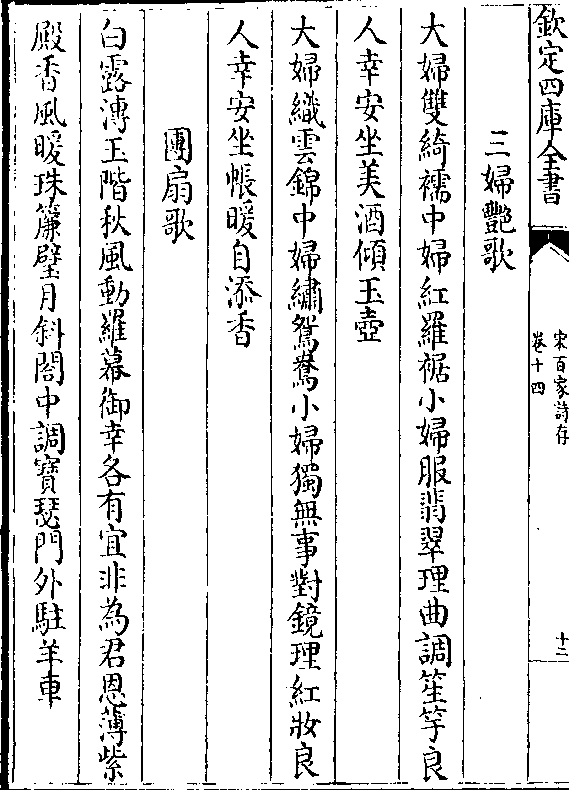 欽定四庫全書
宋百家詩存
卷十四
十二
三婦艷歌
大婦雙綺襦中婦紅羅裾小婦服翡翠理曲調笙竽良
人幸安坐美酒傾玉壺
大婦織雲錦中婦繡鴛鴦小婦獨無事對鏡理紅妝良
人幸安坐帳暖自添香
團扇歌
白露漙玉階秋風動羅幕御幸各有宜非為君恩薄紫
殿香風暖珠簾璧月斜閤中調寶瑟門外駐羊車